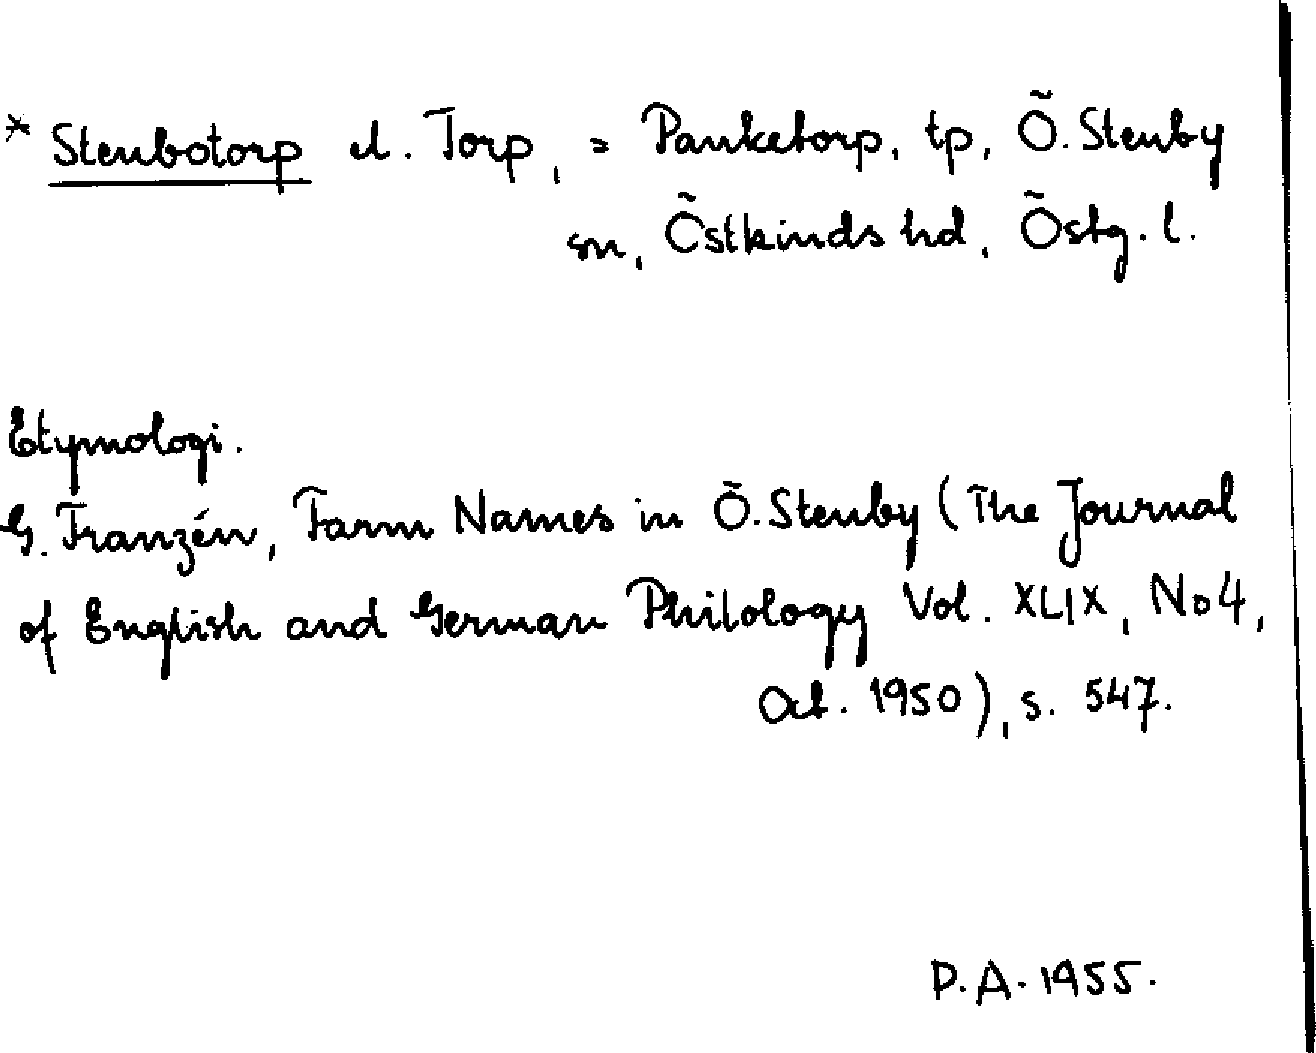 * Stenbotorp el. Torp, = Panketorp, tp, Ö. Stenby
sn, Östkinds hd, Östg. l.
Etymologi.
G. Franzén, Farm Names in Ö. Stenby (The Journal
of English and German Philology Vol. XLIX, No 4,
Oct. 1950), s. 547.
P.A. 1955.